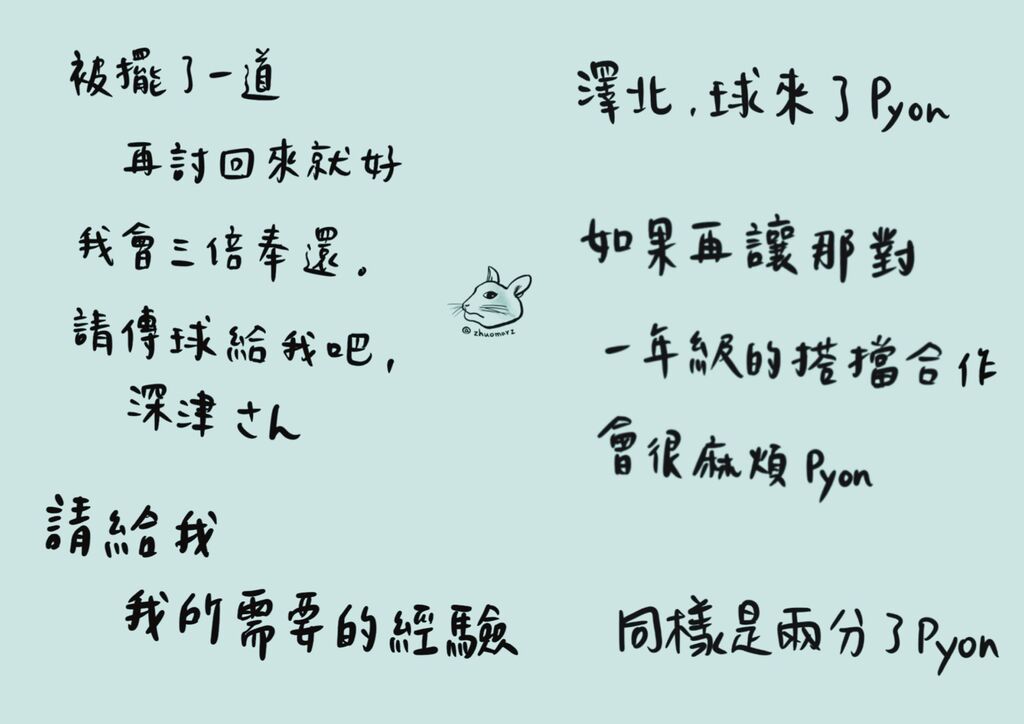 被擺了一道
再討回來就好
我會三倍奉還。
請傳球給我吧,
深津さん
請給我
我所需要的經驗
@zhuomorz
澤北,球來了Pyon
如果再讓那對
一年級的搭擋合作
會很麻煩Pyon
同樣是兩分了Pyon